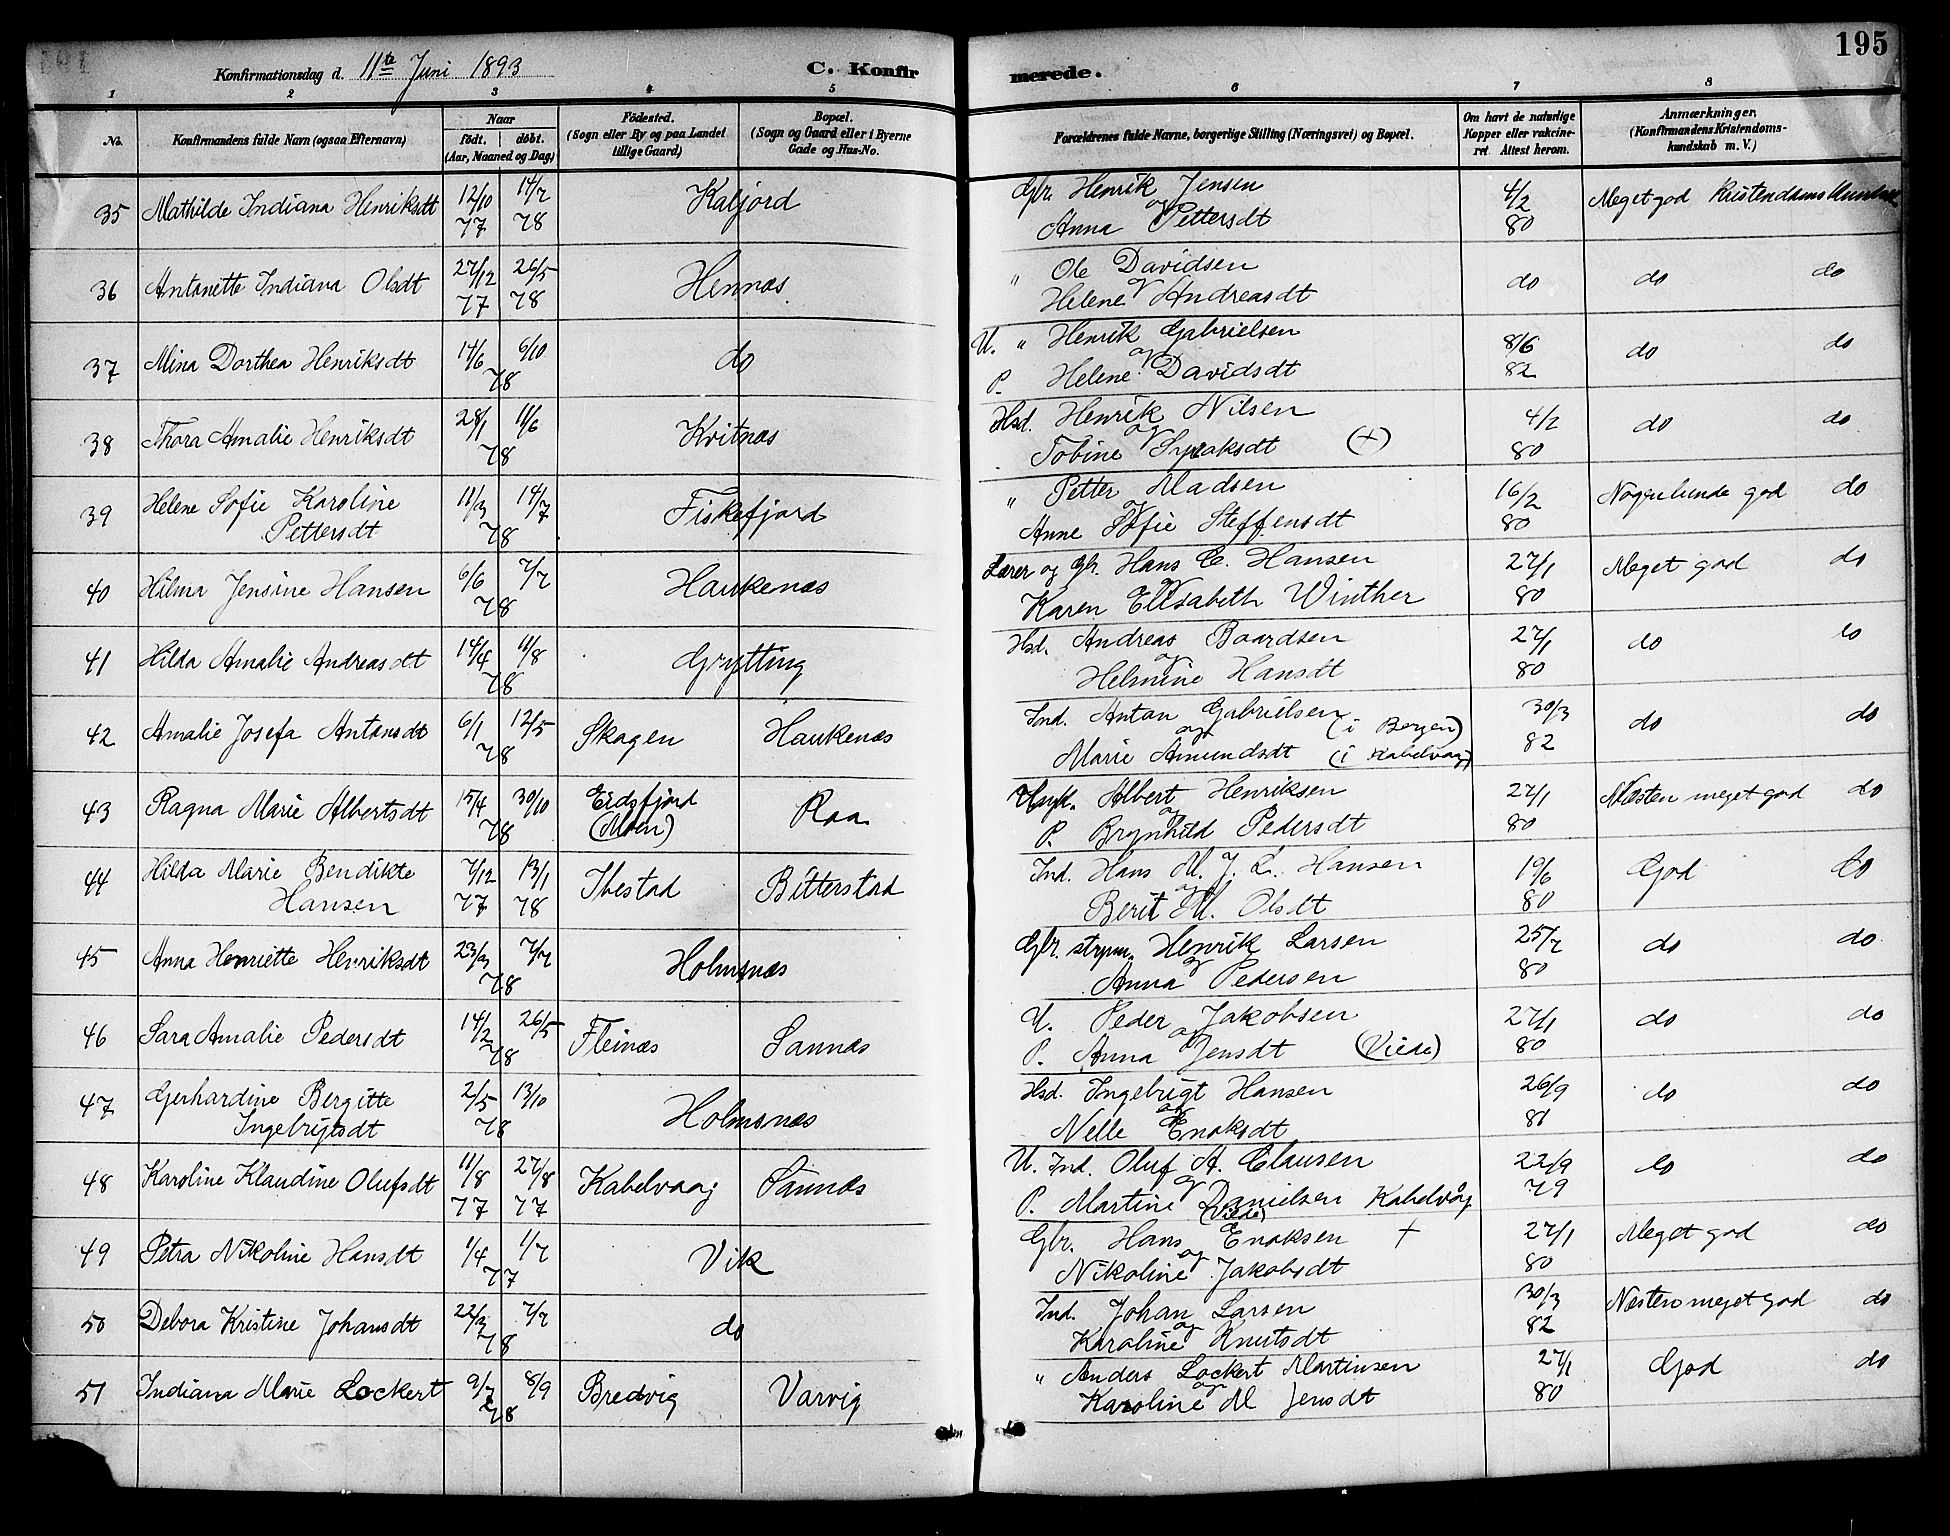 195
Konfirmationsdag d. 11te Juni 1893 C. Konfirmerede.
1 2 3 4 5 6 7 8
No. Konfirmandens fulde Navn (ogsaa Efternavn) Naar født, døbt. (Aar, Maaned og Dag) Fødested. (Sogn eller By og paa Landet tillige Gaard) Bopæl. (Sogn og Gaard eller i Byerne Gade og Hus-No. Forældrenes fulde Navne, borgerlige Stilling (Næringsvei) og Bopæl. Om havt de naturlige Kopper eller vakcineret. Attest herom. Anmærkninger. (Konfirmandens Kristendomskundskab m. V.)
35 Mathilde Indiana Henriksdt 12/10 77 14/7 78 Kaljord Gbr. Henrik Jensen og Anna Pettersdt 4/2 80 Meget god Kristendoms
36 Antonette Indiana Olsdt 27/12 77 26/5 78 Hennæs " Ole Davidsen og Helene Andreasdt do do do
37 Mina Dorthea Henriksdt 14/6 6/10 78 do U. " Henrik Gabrielsen og P. Helene Davidsdt 8/6 82 do do
38 Thora Amalie Henriksdt 28/1 11/6 78 Kvitnæs Hsd. Henrik Nilsen og Tobine (+) 4/2 80 do do
39 Helene Sofie Karoline Pettersdt 11/3 14/7 78 Fiskefjord " Petter Madsen og Anne Sofie Steffensdt 16/2 80 Nogenlunde god do
40 Hilma Jensine Hansen 6/6 7/7 78 Haukenæs Lærer og Gbr. Hans C. Hansen og Karen Elisabeth Winther 27/1 80 Meget god do
41 Hilda Amalie Andreasdt 14/4 11/8 78 Grytting Hsd. Andreas Baardsen og Helmine Hansdt 27/1 80 do do
42 Amalie Josefa Antonsdt 6/1 12/5 78 Skagen Haukenæs Ind. Anton Gabrielsen (i Bergen) og Marie Amundsdt (i Kabelvaag) 30/3 82 do do
43 Ragna Marie Albertsdt 15/4 30/10 78 Eidsfjord (Moen) Raa Ungk. Albert Henriksen og P. Brynhild Pedersdt 27/1 80 Næsten meget god do
44 Hilda Marie Bendikte Hansen 7/12 77 13/1 78 Ibestad Bitterstad Ind. Hans M. J. L. Hansen og Berit M. Olsdt 19/6 80 God do
45 Anna Henriette Henriksdt 23/3 7/7 78 Holmsnæs Gbr. strpm. Henrik Larsen og Anna Pedersen 25/7 80 do do
46 Sara Amalie Pedersdt 14/2 26/5 78 Fleinæs Sannæs U. Peder Jakobsen og P. Anna Jensdt (Viede) 27/1 80 do do
47 Gerhardine Bergitte Ingebrigtsdt 2/5 13/10 78 Holmsnæs Hsd. Ingebrigt Hansen og Nelle Enoksdt 26/9 81 do do
48 Karoline Klaudine Olufsdt 11/8 77 27/8 77 Kabelvaag Sannæs U. Ind. Oluf A. Clausen og P. Martine Danielsen Kabelvåg (Viede) 22/9 79 do do
49 Petra Nikoline Hansdt 1/4 1/7 77 Vik Gbr. Hans Enoksen + og Nikoline Jakobsdt 27/1 80 Meget god do
50 Debora Kristine Johansdt 22/3 7/7 78 do Ind. Johan Larsen og Karoline Knutsdt 30/3 82 Næsten meget god do
51 Indiana Marie Lockert 9/7 8/9 78 Bredvig Varvig " Anders Lockert Martinsen og Karoline M Jensdt 27/1 80 God do